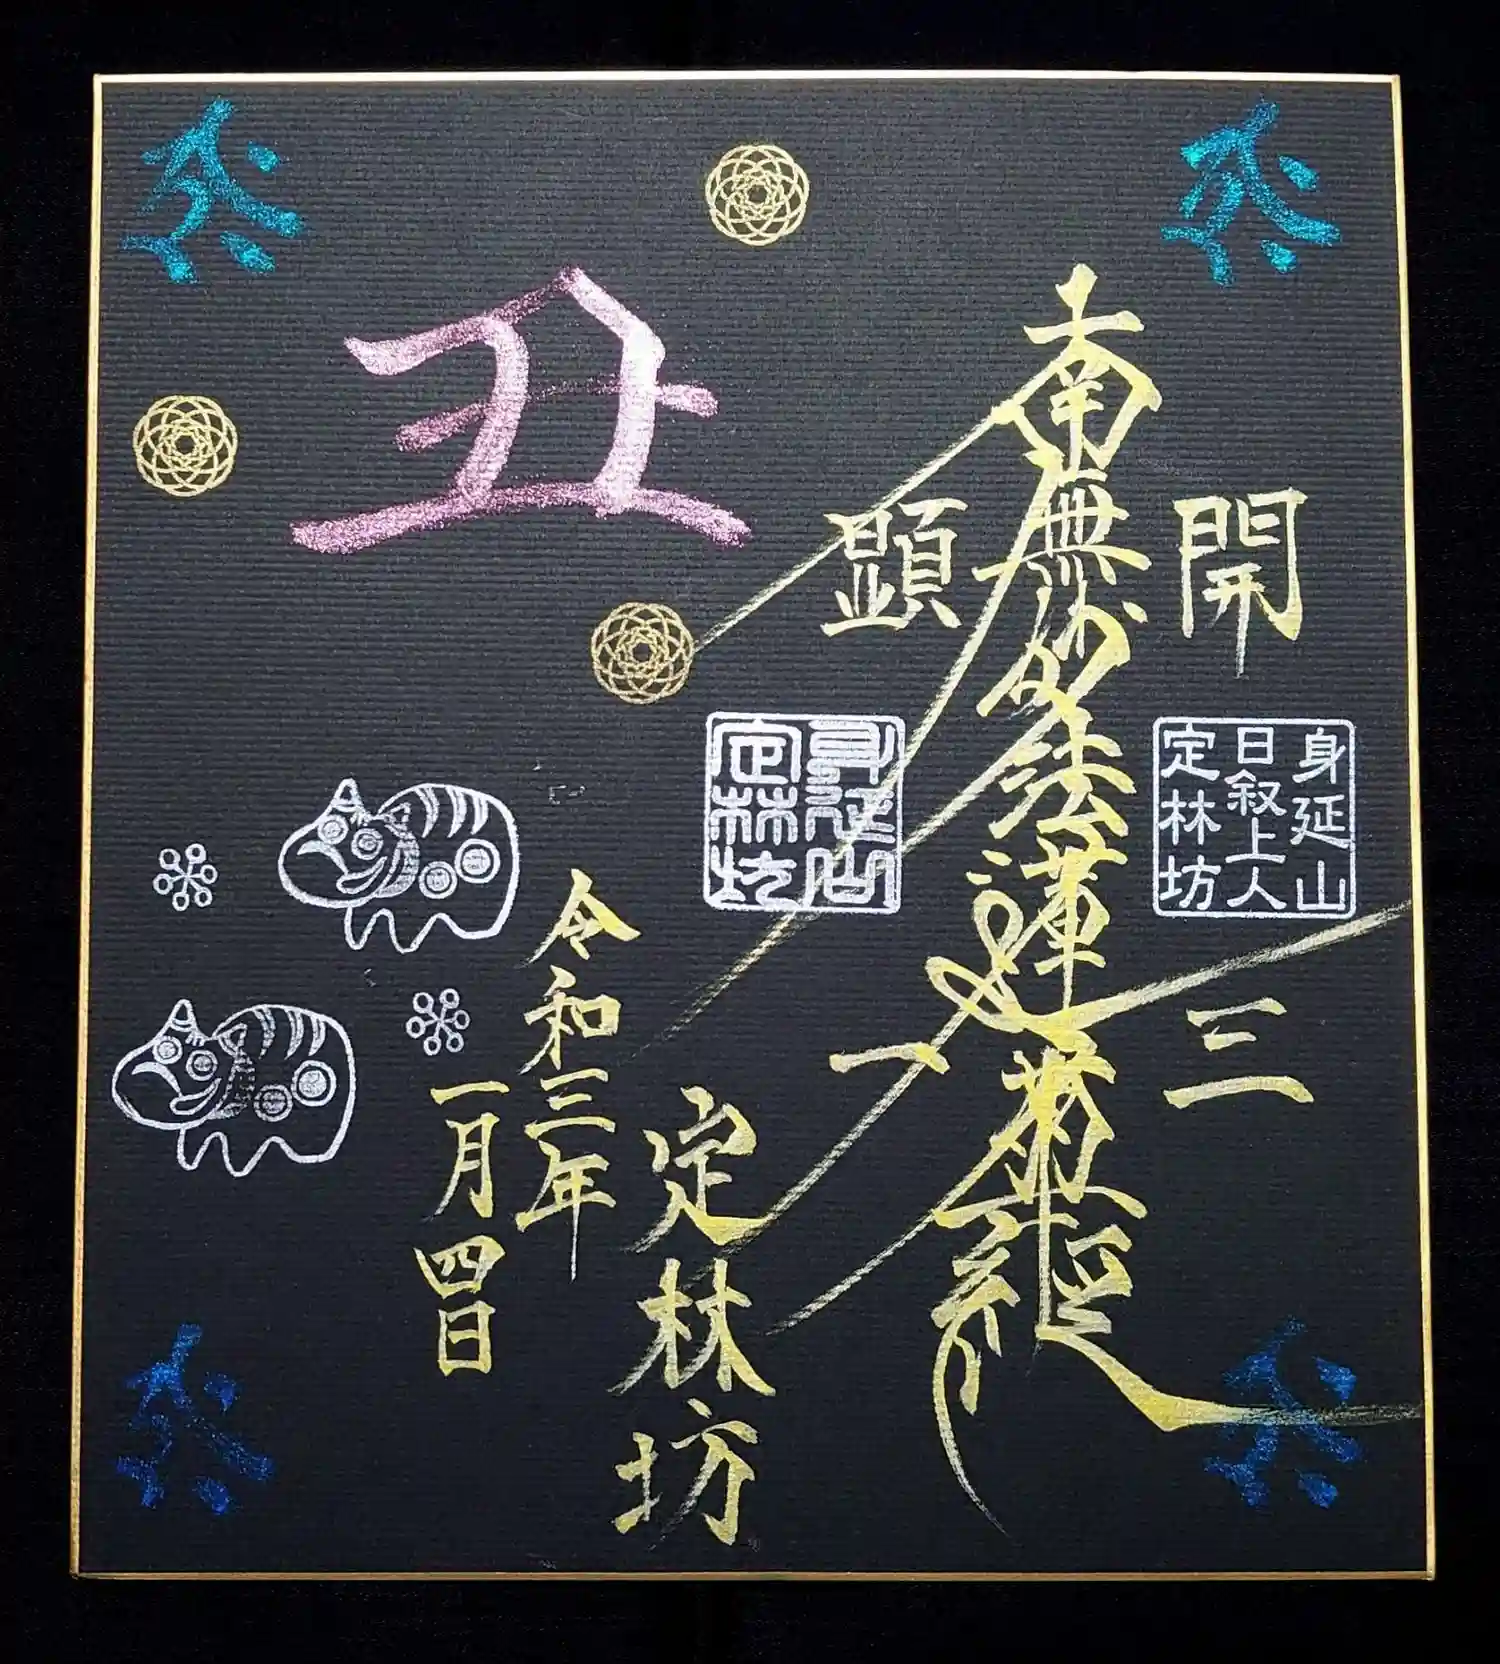 南無妙法蓮華経
開三
顕一
身延山
日叙上人
定林坊
身延山
定林坊
丑
定林坊
令和三年
一月四日